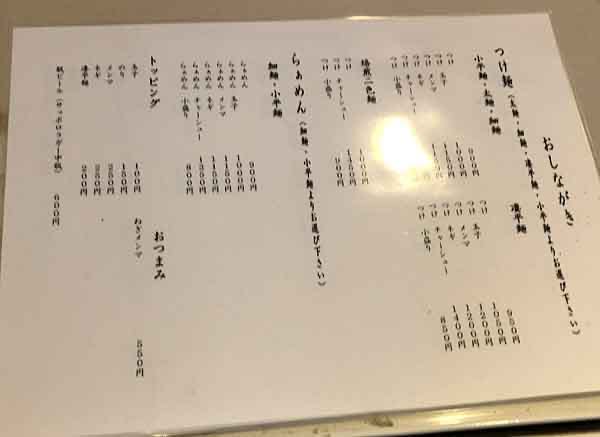 おしながき
つけ麺(太麺・細麺・凄平麺・小平麺よりお選び下さい)
小平麺・太麺・細麺
つけ 900円
つけ 玉子 1000円
つけ メンマ 1150円
つけ ネギ
つけ チャーシュー
つけ 小盛り
凄平麺
つけ 950円
つけ 玉子 1050円
つけ メンマ 1200円
つけ ネギ 1200円
つけ チャーシュー 1400円
つけ 小盛り 850円
焙煎二色麺
つけ 1000円
つけ チャーシュー 1450円
つけ 小盛り 900円
らぁめん(細麺・小平麺よりお選び下さい)
細麺・小平麺
らぁめん 900円
らぁめん 玉子 1000円
らぁめん メンマ 1150円
らぁめん ネギ 1150円
らぁめん チャーシュー 1350円
らぁめん 小盛り 800円
トッピング
玉子 100円
のり 150円
メンマ 250円
ネギ 250円
凄平麺 200円
瓶ビール(サッポロラガー中瓶) 600円
おつまみ
ねぎメンマ 550円